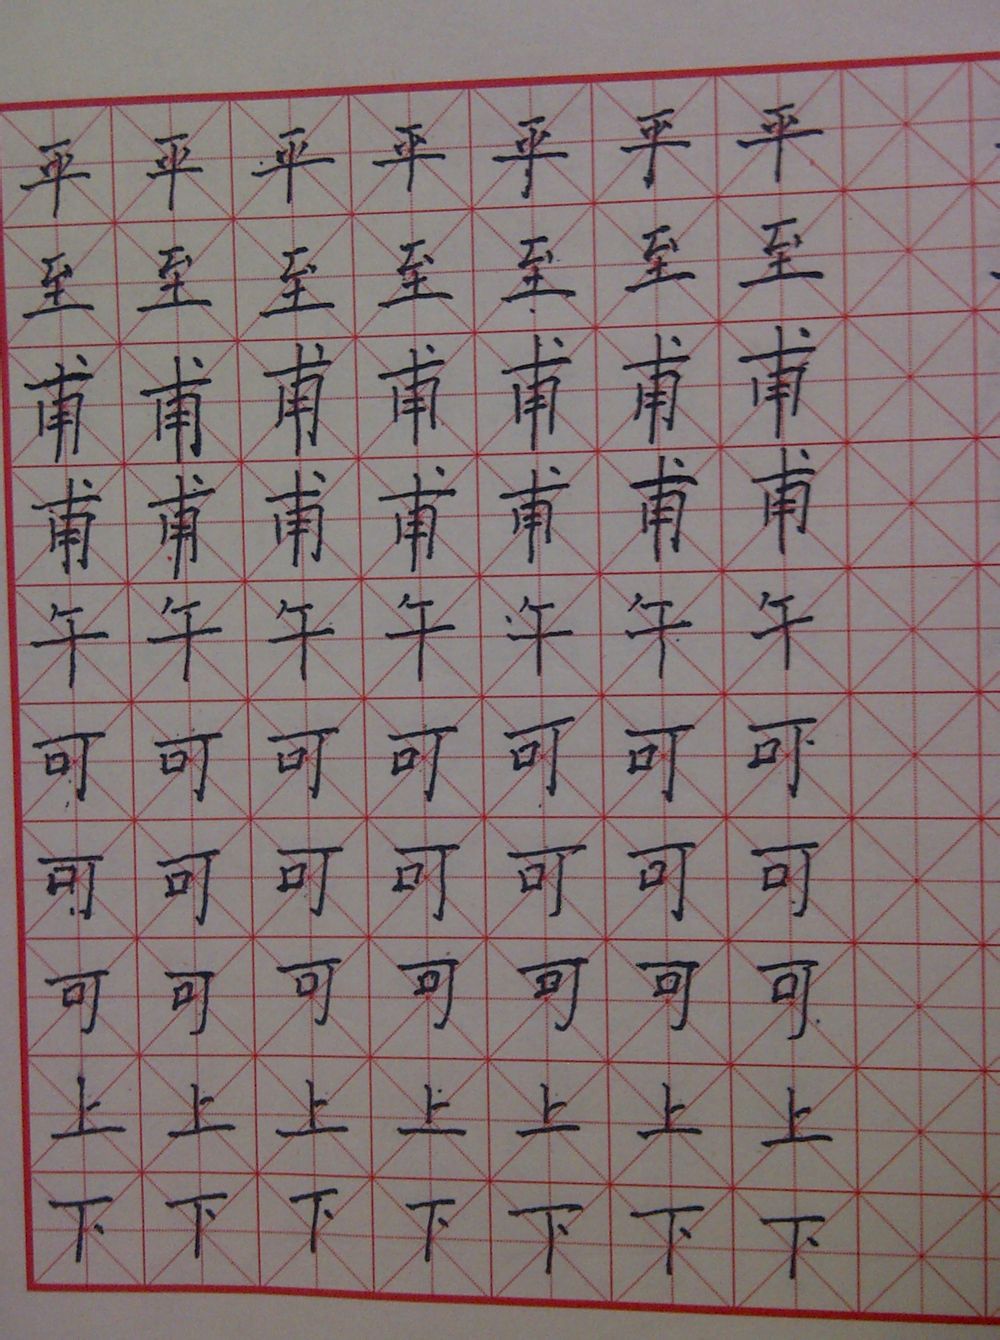 平平平平平平平
至至至至至至至
甫甫甫甫甫甫甫
甫甫甫甫甫甫甫
午午午午午午午
可可可可可可可
可可可可可可可
可可可可可可可
上上上上上上上
下下下下下下下